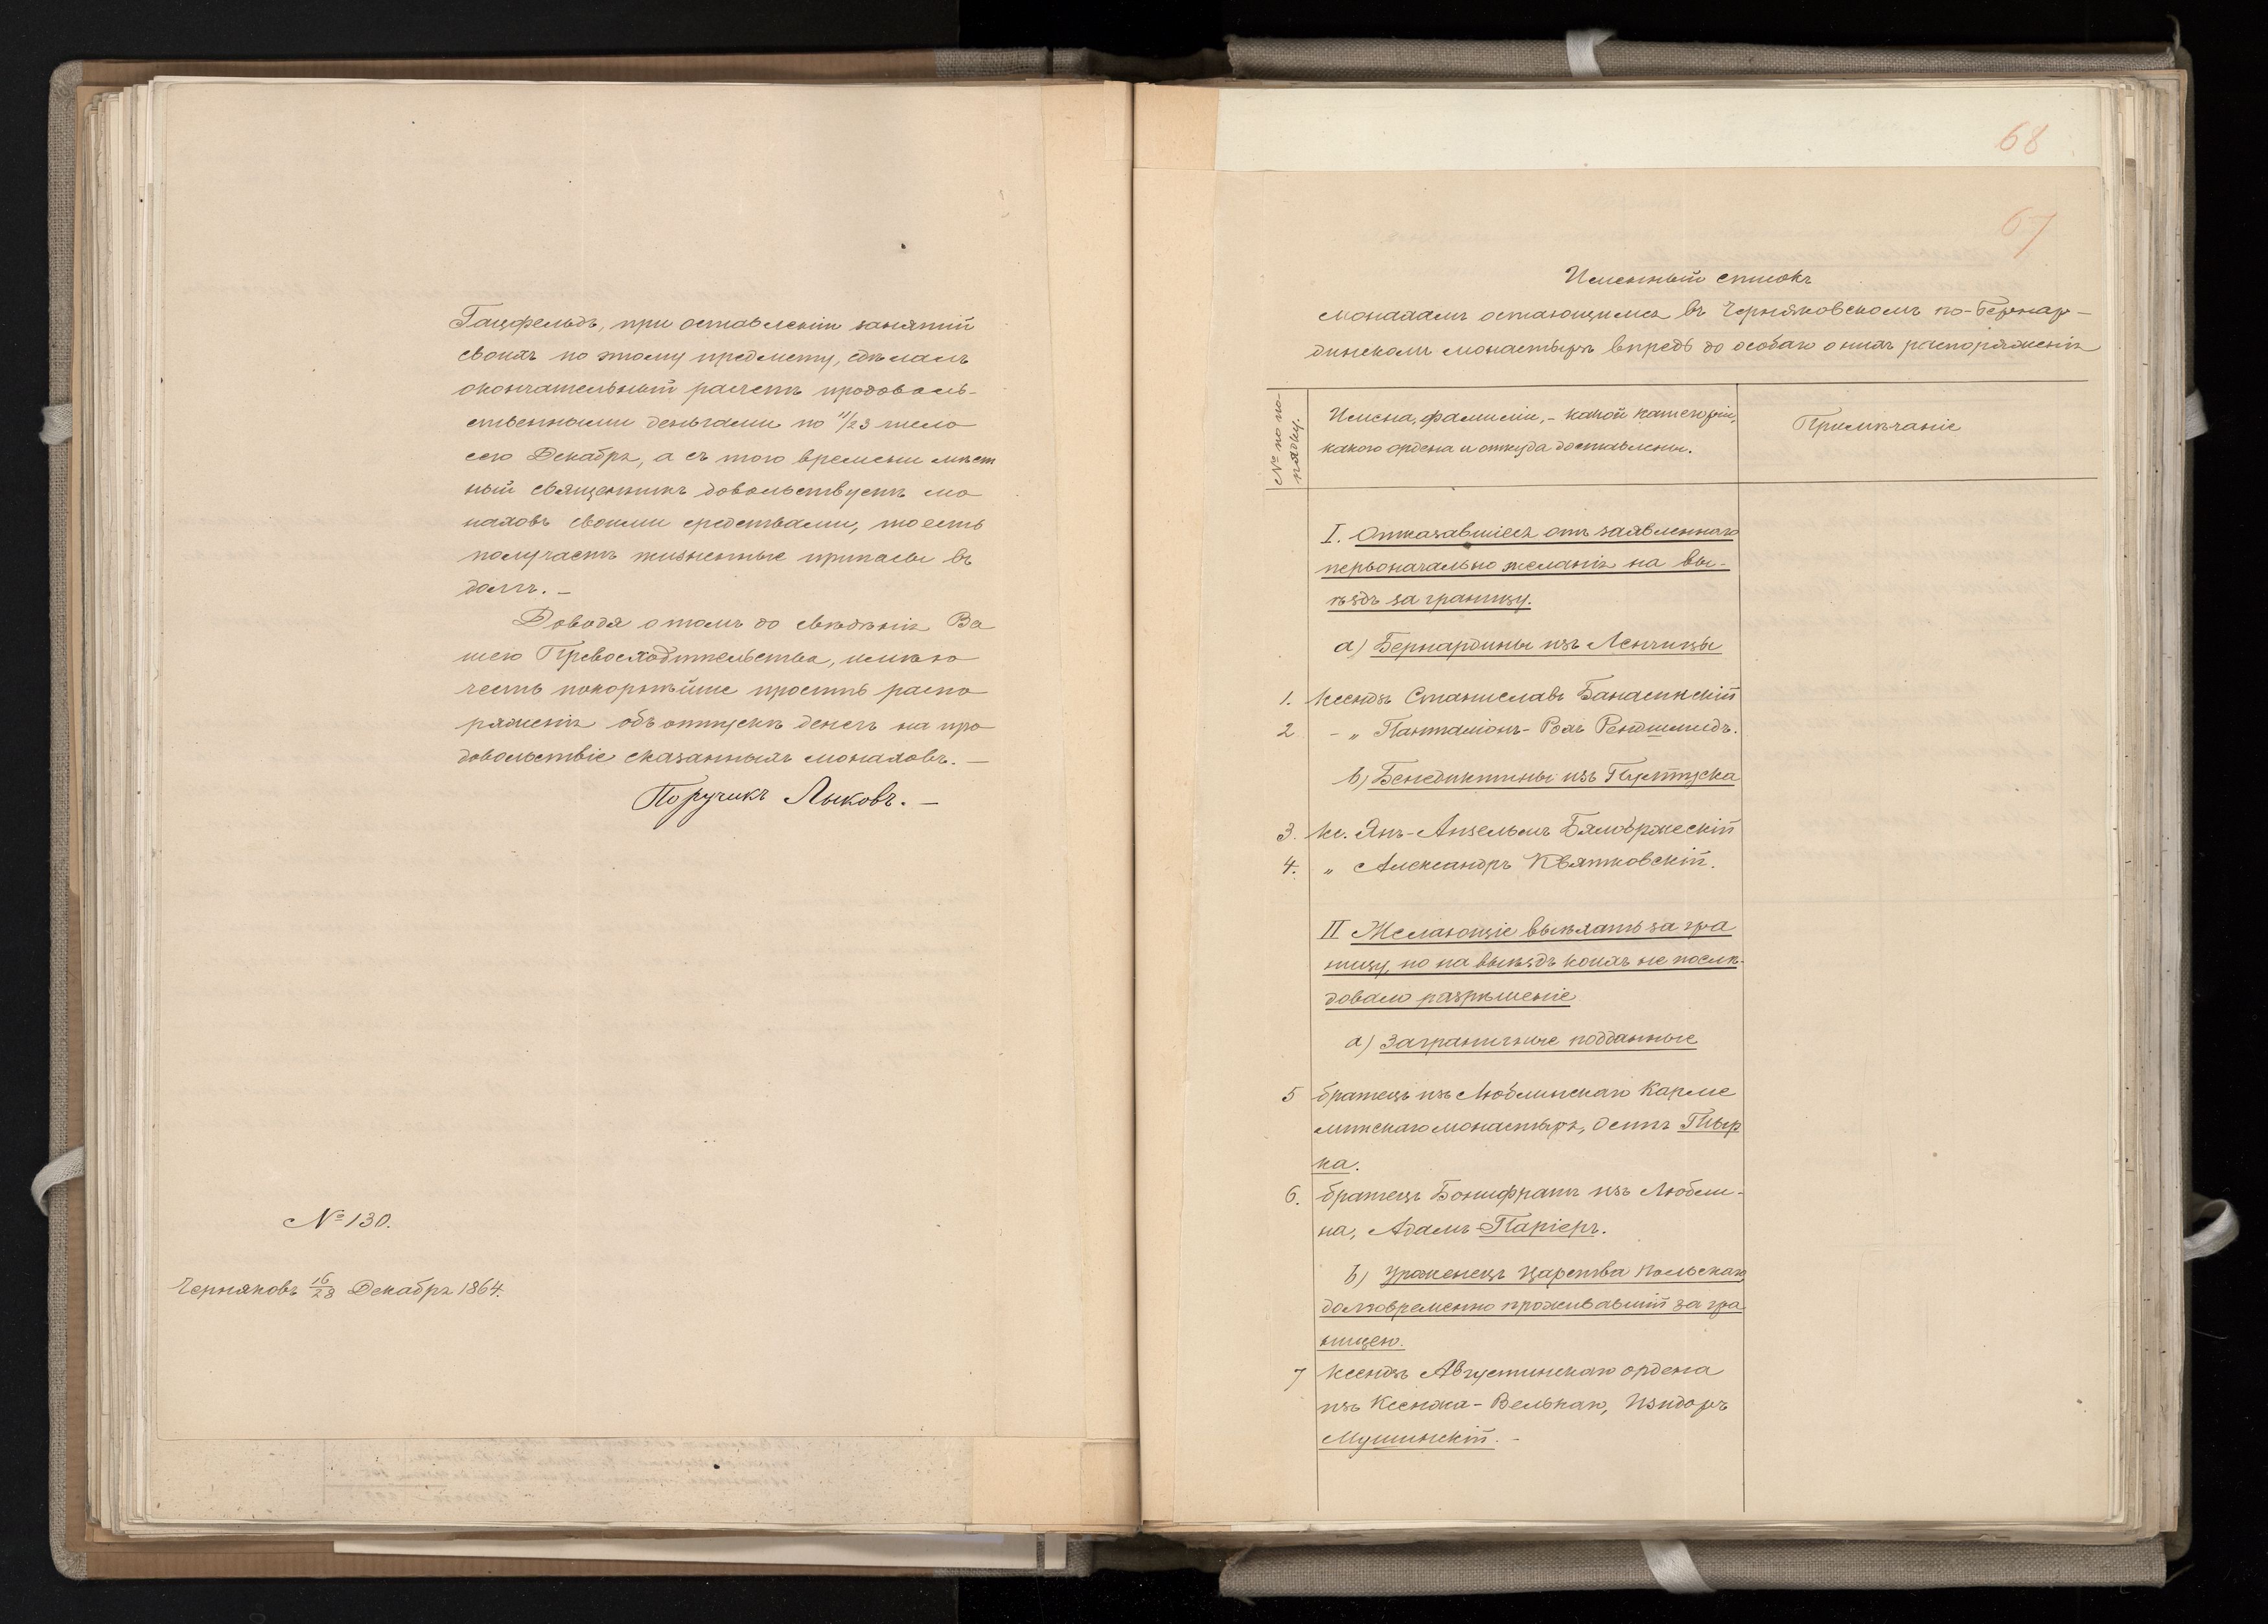 Гацфельдъ, при оставленіи занятій
своихъ по этому предмету, сдѣлалъ
окончательный расчетъ продоволь-
ственными деньгами по 11/23 число
сего Декабря, а съ того времени мѣст
ный священникъ довольствуетъ мо
наховъ своими средствами, то есть
получаетъ жизненные припасы въ
долгъ. –
Доводя о томъ до свѣдѣнія Ва
шего Превосходительства, имѣю
честь покорнѣйше просить распо
ряженія объ отпускѣ денегъ на про
довольствіе сказанныхъ монаховъ. –
Поручикъ Лыковъ. –
№ 130.
Черняковъ 16/28 Декабря 1864.
68
67
Именный списокъ
монахамъ остающимся въ Черняковскомъ по-Бернар-
динскомъ монастырѣ впредь до особаго о нихъ распоряженія
№ по по-
рядку.
Имена, фамиліи, – какой категоріи,
какого ордена и откуда доставлены.
Примѣчаніе
I. Отказавшіеся отъ заявленнаго
первоначально желанія на вы-
ѣздъ за границу.
а) Бернардины изъ Ленчицы
1. Ксендзъ Станиславъ Банасинскій
2 – „ Панталіонъ-Рохъ Рендшмидъ.
b) Бенедиктины изъ Пултуска
3. Кс. Янъ-Анзельмъ Бялобржескій
4. „ Александръ Квятковскій.
II Желающіе выѣхать за гра
ницу, но на выѣздъ коихъ не послѣ-
довало разрѣшеніе
а) Заграничные подданные
5 братецъ изъ Люблинскаго Карме
литскаго монастыря, Осипъ Гпыр
ка.
6. братецъ Бонифратъ изъ Любли-
на, Адамъ Паріеръ.
b) Уроженецъ Царства Польскаго
долговременно проживавшій за гра
ницею.
7 Ксендзъ Августинскаго ордена
изъ Ксенжа-Велькаго, Изидоръ
Мушинскій. –